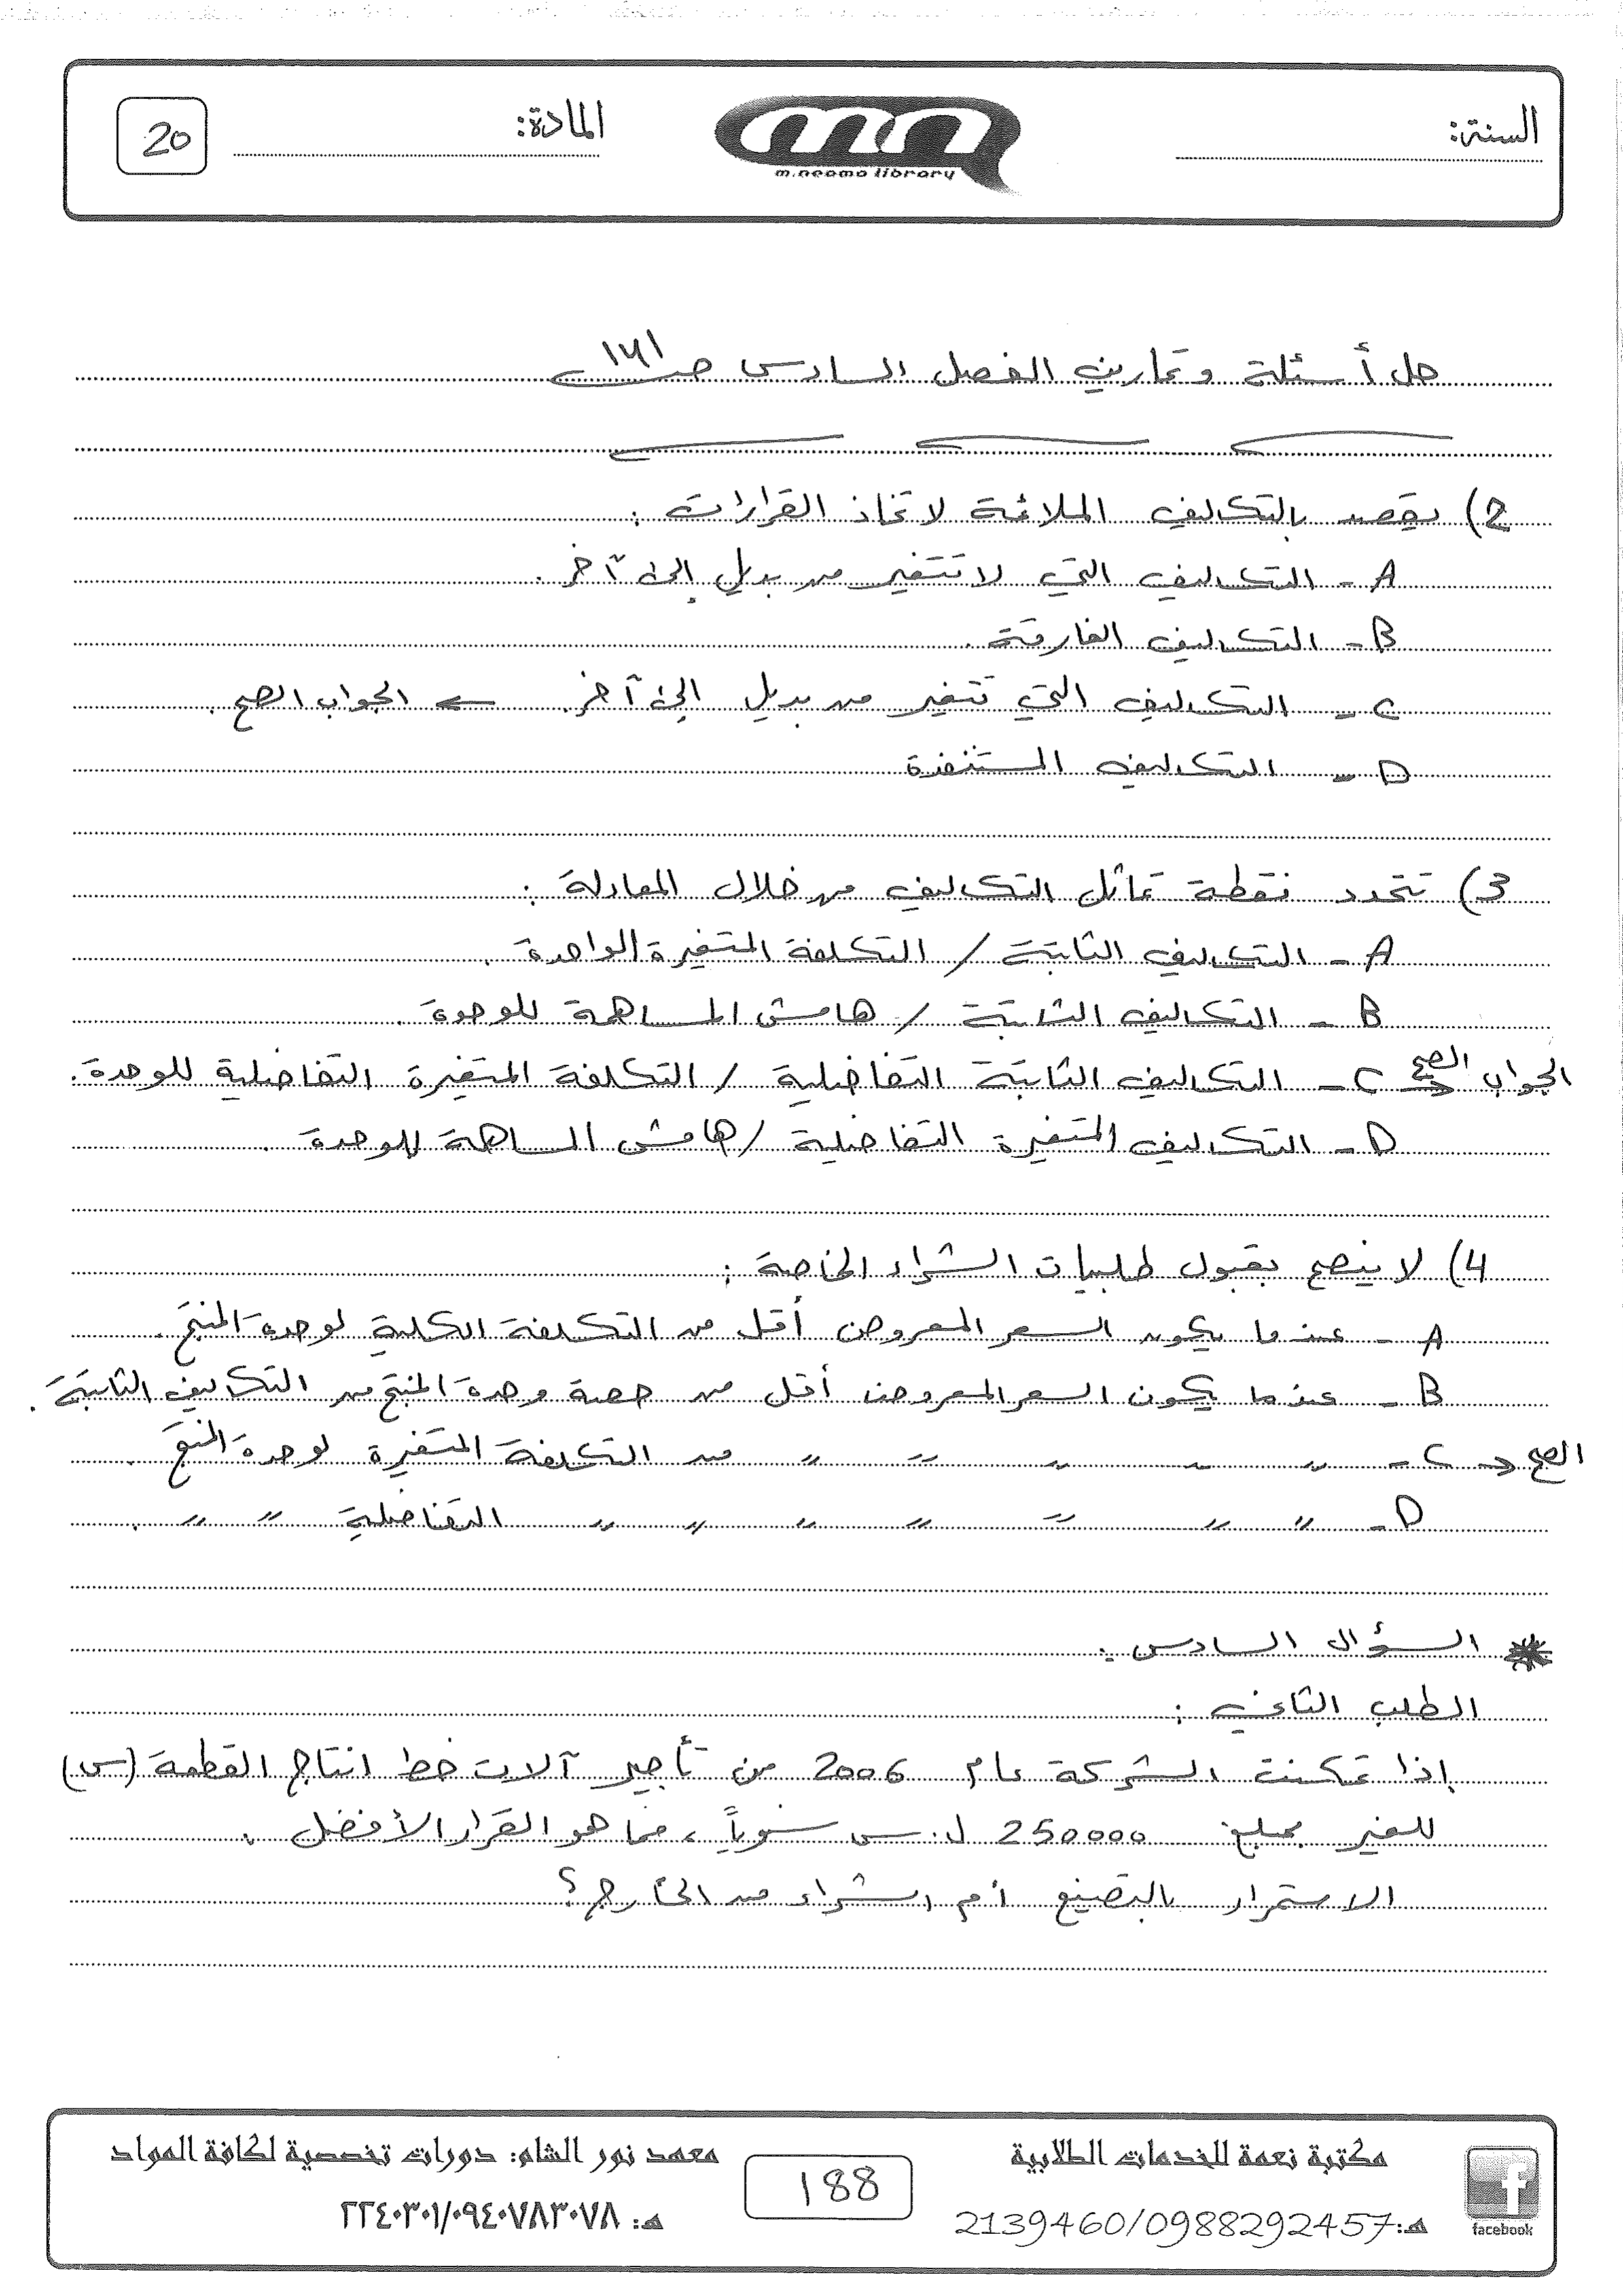 السنة:
m.neama library
المادة:
20
حل أسئلة وتمارين الفصل السادس صـ ١٧١
2) يقصد بالتكاليف الملائمة لاتخاذ القرارات :
A - التكاليف التي لا تتغير من بديل إلى آخر .
B - التكاليف الفارقة .
C - التكاليف التي تتغير من بديل إلى آخر . ← الجواب الصح .
D - التكاليف المستنفذة
3) تتحدد نقطة تماثل التكاليف من خلال المعادلة :
A - التكاليف الثابتة / التكلفة المتغيرة الواحدة .
B - التكاليف الثابتة / هامش المساهمة للوحدة .
الجواب الصح → C - التكاليف الثابتة التفاضلية / التكلفة المتغيرة التفاضلية للوحدة .
D - التكاليف المتغيرة التفاضلية / هامش المساهمة للوحدة .
4) لا ينصح بقبول طلبيات الشراء الخاصة :
A - عندما يكون السعر المعروض أقل من التكلفة الكلية لوحدة المنتج .
B - عندما يكون السعر المعروض أقل من حصة وحدة المنتج من التكاليف الثابتة .
الصح → C - " " " " " من التكلفة المتغيرة لوحدة المنتج .
D - " " " " " " " التفاضلية " " .
* السؤال السادس :
الطلب الثاني :
إذا تمكنت الشركة عام 2006 من تأجير آلات خط انتاج القطعة (س)
للغير بمبلغ 250000 ل.س سنوياً ، فما هو القرار الأفضل .
الاستمرار بالتصنيع أم الشراء من الخارج ؟
facebook
مكتبة نعمة للخدمات الطلابية
هـ: 2139460/0988292457
188
معهد نور الشام: دورات تخصصية لكافة المواد
هـ: ٢٢٤٠٣٠١/٠٩٤٠٧٨٣٠٧٨